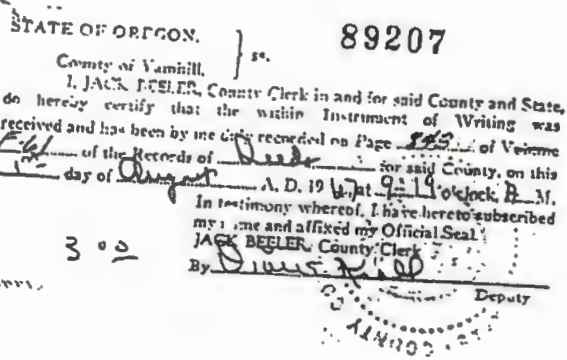 STATE OF OREGON,
89207
County of Yamhill, } ss.
I, JACK BEELER, County Clerk in and for said County and State,
do hereby certify that the within Instrument of Writing was
received and has been by me duly recorded on Page 845 of Volume
F-61 of the Records of Deeds for said County, on this
1st day of August A. D. 1967 at 9:19 o'clock A. M.
In testimony whereof, I have hereto subscribed
my name and affixed my Official Seal.
3 00
JACK BEELER, County Clerk
By
Deputy
COUNTY